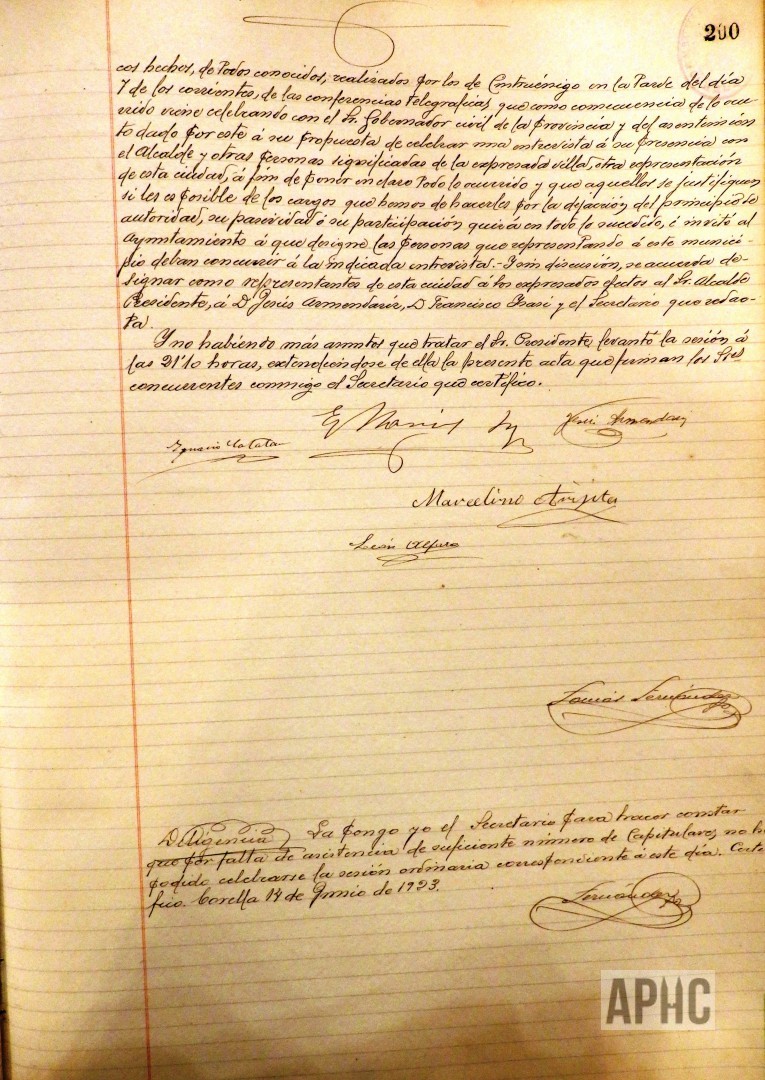 200
cos hechos, de todos conocidos, realizados por los de Cintruénigo en la tarde del día
7 de los corrientes, de las conferencias telegraficas, que como consecuencia de lo ocu-
rrido viene celebrando con el Sr. Gobernador civil de la provincia y del asentimien-
to dado por este á su propuesta de celebrar una entrevista á su presencia con
el Alcalde y otras personas significadas de la expresada villa, otra representación
de esta ciudad, á fin de poner en claro todo lo ocurrido y que aquellos se justifiquen
si les es posible de los cargos que hemos de hacerles por la dejación del principio de
autoridad, su pasividad ó su participación quizá en todo lo sucedido, é invitó al
Ayuntamiento á que designe las personas que representando á este munici-
pio deban concurrir á la indicada entrevista.- Y sin discusión, se acuerda de-
signar como representantes de esta ciudad á los expresados efectos al Sr. Alcalde
Presidente, á D. Jesús Armendariz, D. Francisco y el Secretario que redac-
ta.
Y no habiendo más asuntos que tratar el Sr. Presidente, levantó la sesión á
las 21'10 horas, extendiéndose de ella la presente acta que firman los Sres
concurrentes conmigo el Secretario que certifico.
Ignacio Catalan
Jesús Armendariz
Marcelino Arijita
León Alfaro
Tomás Fernández
Diligencia La pongo yo el Secretario para hacer constar
que por falta de asistencia de suficiente número de Capitulares, no ha
podido celebrarse la sesión ordinaria correspondiente á este día. Certi-
fico. Corella 14 de Junio de 1923.
Fernández
APHC